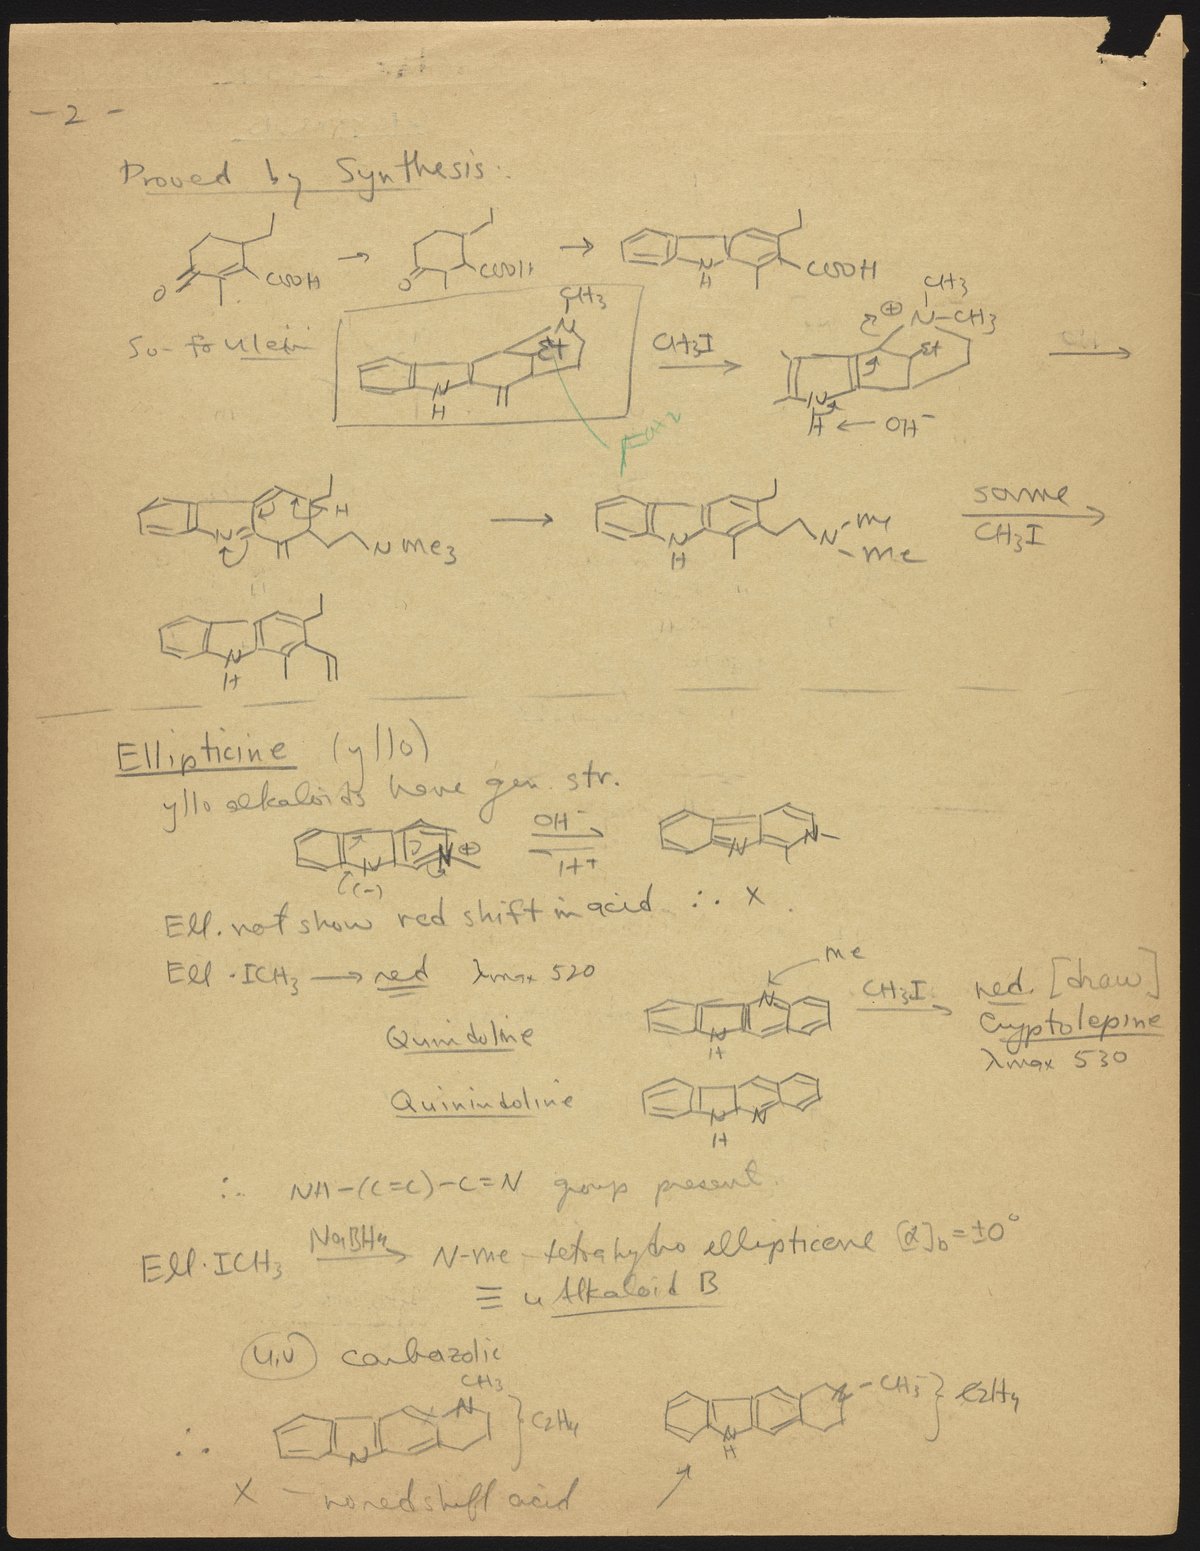 - 2 -
Proved by Synthesis:
O COOH → O COOH → N H COOH
So-fo ulein
CH3 N Et N H
CH3I
CH3 ⊕ N-CH3 Et N H ← OH-
N H N Me3 → N H N -Me -Me
same
CH3I
N H
Ellipticine (yllo)
yllo alkaloids have gen. str.
N (-) N ⊕ OH- H+ N N
Ell. not show red shift in acid ∴ X
Ell · ICH3 → red λmax 520
me
Quindoline N H N CH3I → red. [draw]
Cryptolepine
λmax 530
Quinindoline N H N
∴ NH-(C=C)-C=N group present.
Ell·ICH3 NaBH4 → N-me-tetrahydro ellipticene [α]D = ±0°
≡ u Alkaloid B
U.V carbazolic
∴ N CH3 N } C2H4 N H N -CH3 } C2H4
X - no red shift acid